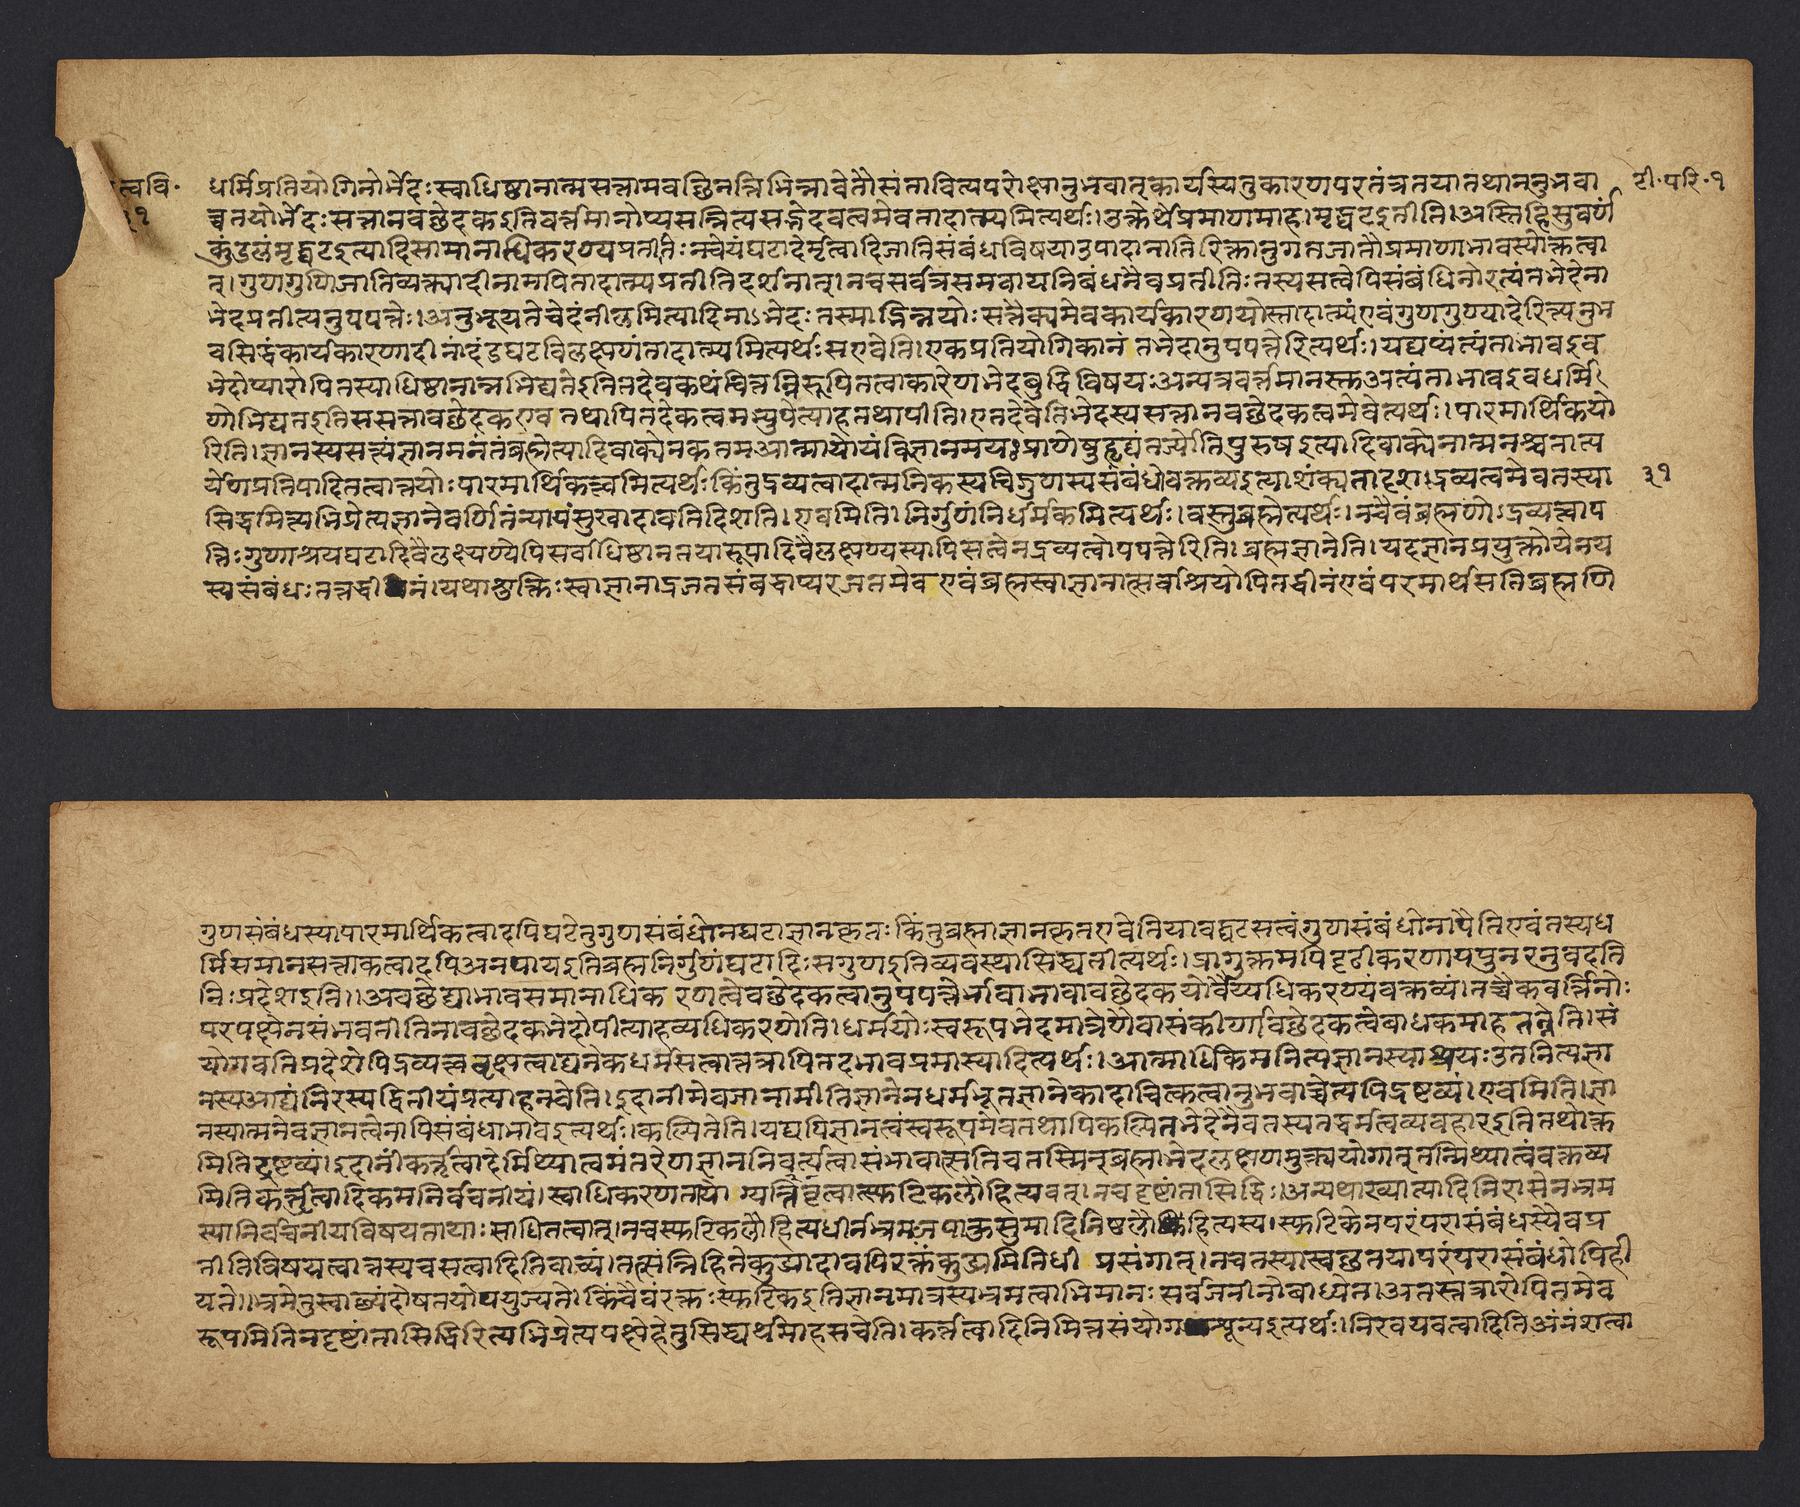 त्ववि॰ धर्मिप्रतियोगिनोर्भेदःस्वाधिष्ठानात्मसत्तामवछिनत्तिभिन्नावेतौसंतावित्यपरोक्षानुभवात्कार्यस्यतुकारणपरतंत्रतयातथाननुभवा टी॰परि॰१
३१ च्चतयोर्भेदःसत्तानवछेदकइतिवर्त्तमानोप्यसन्नित्यसद्भेदवत्वमेवतादात्म्यमित्यर्थः।उक्तेर्थेप्रमाणमाह।मृद्घटइतीति।अस्तिहिसुवर्णं
कुंडलंमृद्घटइत्यादिसामानाधिकरण्यप्रतीतिःनचेयंघटादेर्मृत्वादिजातिसंबंधविषयाउपादानातिरिक्तानुगतजातौप्रमाणाभावस्योक्तत्वा
त्।गुणगुणिजातिव्यक्त्यादीनामपितादात्म्यप्रतीतिदर्शनात्।नचसर्वत्रसमवायनिबंधनैवप्रतीतिःतस्यसत्वेपिसंबंधिनोरत्यंतभेदेना
भेदप्रतीत्यनुपपत्तेः।अनुभूयतेचेदंनीलमित्यादिनाऽभेदःतस्माद्भिन्नयोःसत्तैक्यमेवकार्यकारणयोस्तादात्म्यंएवंगुणगुण्यादेरित्यनुभ
वसिद्धंकार्यकारणादीनांदंडघटविलक्षणंतादात्म्यमित्यर्थःसएवेति।एकप्रतियोगिकानंतभेदानुपपत्तेरित्यर्थः।यद्यप्यत्यंताभावइव
भेदोप्यारोपितस्याधिष्ठानान्नभिद्यतेइतितदेवकथंचित्तन्निरूपितत्वाकारेणभेदबुद्धिविषयःअन्यत्रवर्त्तमानस्तुअत्यंताभावइवधर्मि
णोभिद्यतइतिससत्तावछेदकएवतथापितदेकत्वमभ्युपेत्याहतथापीति।एतदेवेतिभेदस्यसत्तानवछेदकत्वमेवेत्यर्थः।पारमार्थिकयो
रिति।ज्ञानस्यसत्यंज्ञानमनंतंब्रह्मेत्यादिवाक्येनकतमआत्मायोयंविज्ञानमयःप्राणेषुहृद्यंतर्ज्योतिपुरुषइत्यादिवाक्येनात्मनश्चतात्प
र्येणप्रतिपादितत्वात्तयोःपारमार्थिकत्वमित्यर्थःकिंतुद्रव्यत्वादात्मनिकस्यचिद्गुणस्यसंबंधोवक्तव्यइत्याशंक्यतादृशद्रव्यत्वमेवतस्या ३१
सिद्धमित्यभिप्रेत्यज्ञानेवर्णितंन्यायंसुखादावतिदिशति।एवमिति।निर्गुणंनिर्धर्मकमित्यर्थः।वस्तुब्रह्मेत्यर्थः।नचैवंब्रह्मणोऽद्रव्यत्वाप
त्तिःगुणाश्रयघटादिवैलक्ष्यण्येपिसर्वाधिष्ठानतयारूपादिवैलक्षण्यस्यापिसत्वेनद्रव्यत्वोपपत्तेरिति।ब्रह्मज्ञानेति।यदज्ञानप्रयुक्तोयेनय
स्यसंबंधःतत्तद्धीनं।यथाशुक्तिःस्वाज्ञानाद्रजतसंबद्धाप्यरजतमेवएवंब्रह्मस्वाज्ञानात्सर्वाश्रयोपितद्धीनंएवंपरमार्थसतिब्रह्मणि
गुणसंबंधस्यापारमार्थिकत्वादपिघटेतुगुणसंबंधोनघटाज्ञानकृतःकिंतुब्रह्माज्ञानकृतएवेतियावद्घटसत्वंगुणसंबंधोनापैतिएवंतस्यध
र्मिसमानसत्ताकत्वादपिअनपायइतिब्रह्मनिर्गुणंघटादिःसगुणइतिव्यवस्थासिद्ध्यतीत्यर्थः।प्रागुक्तमपिदृढीकरणायपुनरनुवदति
तिःप्रदेशइति।।अवछेद्याभावसमानाधिकरणत्वेवछेदकत्वानुपपत्तेर्भावाभावावछेदकयोर्वैय्यधिकरण्यंवक्तव्यं।तच्चैकवर्त्तिनोः
परपक्षेनसंभवतीतिनावछेदकभेदोपीत्याहव्यधिकरणेति।धर्मयोःस्वरूपभेदमात्रेणैवासंकीर्णावछेदकत्वेबाधकमाहतत्रेति।सं
योगवतिप्रदेशेपिद्रव्यत्ववृक्षत्वाद्यनेकधर्मसत्वात्तत्रापितदभावप्रमास्यादित्यर्थः।आत्माधिकिमनित्यज्ञानस्याश्रयःउतनित्यज्ञा
नस्यआद्यंनिरस्यद्वितीयंप्रत्याहनचेति।इदानीमेवजानामीतिज्ञानेनधर्मभूतज्ञानेकादाचित्कत्वानुभवाच्चेत्यपिद्रष्टव्यं।एवमिति।ज्ञा
नस्यात्मनेवज्ञानत्वेनापिसंबंधाभावइत्यर्थः।कल्पितेति।यद्यपिज्ञानत्वंस्वरूपमेवतथापिकल्पितभेदेनैवतस्यतद्धर्मत्वव्यवहारइतितथोक्त
मितिद्रष्टव्यं।इदानींकर्तृत्वादेर्मिथ्यात्वमंतरेणज्ञाननिवर्त्यत्वासंभावात्सतिचतस्मिन्ब्रह्माभेदलक्षणमुक्त्ययोगात्तन्मिथ्यात्वंवक्तव्य
मितिकर्त्तृत्वादिकमनिर्वचनीयं।स्वाधिकरणतायोग्यन्निष्टत्वात्स्फटिकलौहित्यवत्।नचदृष्टांतासिद्धिः।अन्यथाख्यात्यादिनिरासेनभ्रम
स्यानिर्वचनीयविषयतायाःसाधितत्वात्।नचस्फटिकलौहित्यधीर्नभ्रमःजपाकुसुमादिनिष्ठलौहित्यस्य।स्फटिकेनपरंपरासंबंधस्यैवप्र
तीतिविषयत्वात्तस्यचसत्वादितिवाच्यं।तत्संन्निहितेकुड्यादावपिरक्तंकुड्यमितिधीप्रसंगात्।नचतस्यास्वछतयापरंपरासंबंधोपिही
यते।।भ्रमेतुस्वाछ्यंदोषतयोपयुज्यते।किंचैवंरक्तःस्फटिकइतिज्ञानमात्रस्यभ्रमत्वाभिमानःसर्वजनीनोबाध्येत।अतस्तत्रारोपितमेव
रूपमितिनदृष्टांतासिद्धिरित्यभिप्रेत्यपक्षेहेतुसिद्ध्यर्थमाहसचेति।कर्त्तृत्वादिनिमित्तसंयोगशून्यइत्यर्थः।निरवयवत्वादितिअनंशत्वा